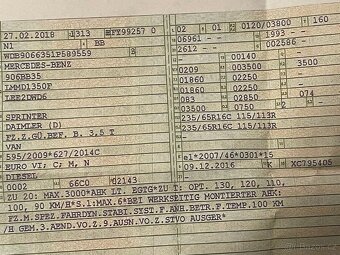 27.02.2018 1313 FX99257 0 02 01 0120/03800 160
N1 BB 06961 1993
WDB9066351P589559 2612 002586
MERCEDES-BENZ 00140
906BB35 0209 3500
LMMD1350F 01860 02250
LEE2DWD6 01860 02250
083 02850 074
SPRINTER 03500 0750 2
DAIMLER (D) 235/65R16C 115/113R
FZ.Z.GÜ.BEF. B. 3,5 T 235/65R16C 115/113R
VAN
595/2009*627/2014C
EURO VI; C; M, N e1*2007/46*0301*15
DIESEL 09.12.2016 K XC795405
0002 66C0 02143
ZU 20: MAX.3000*AHK LT. EGTG*ZU T: OPT. 130, 120, 110,
100, 90 KM/H*S.1:MAX.6*BEI WERKSEITIG MONTIERTER AHK:
FZ.M.SPEZ.FAHRDYN.STABI.SYST.F.ANH.BETR.F.TEMP.100 KM
/H GEM.3.AEND.VO.Z.9.AUSN.VO.Z.STVO AUSGER*